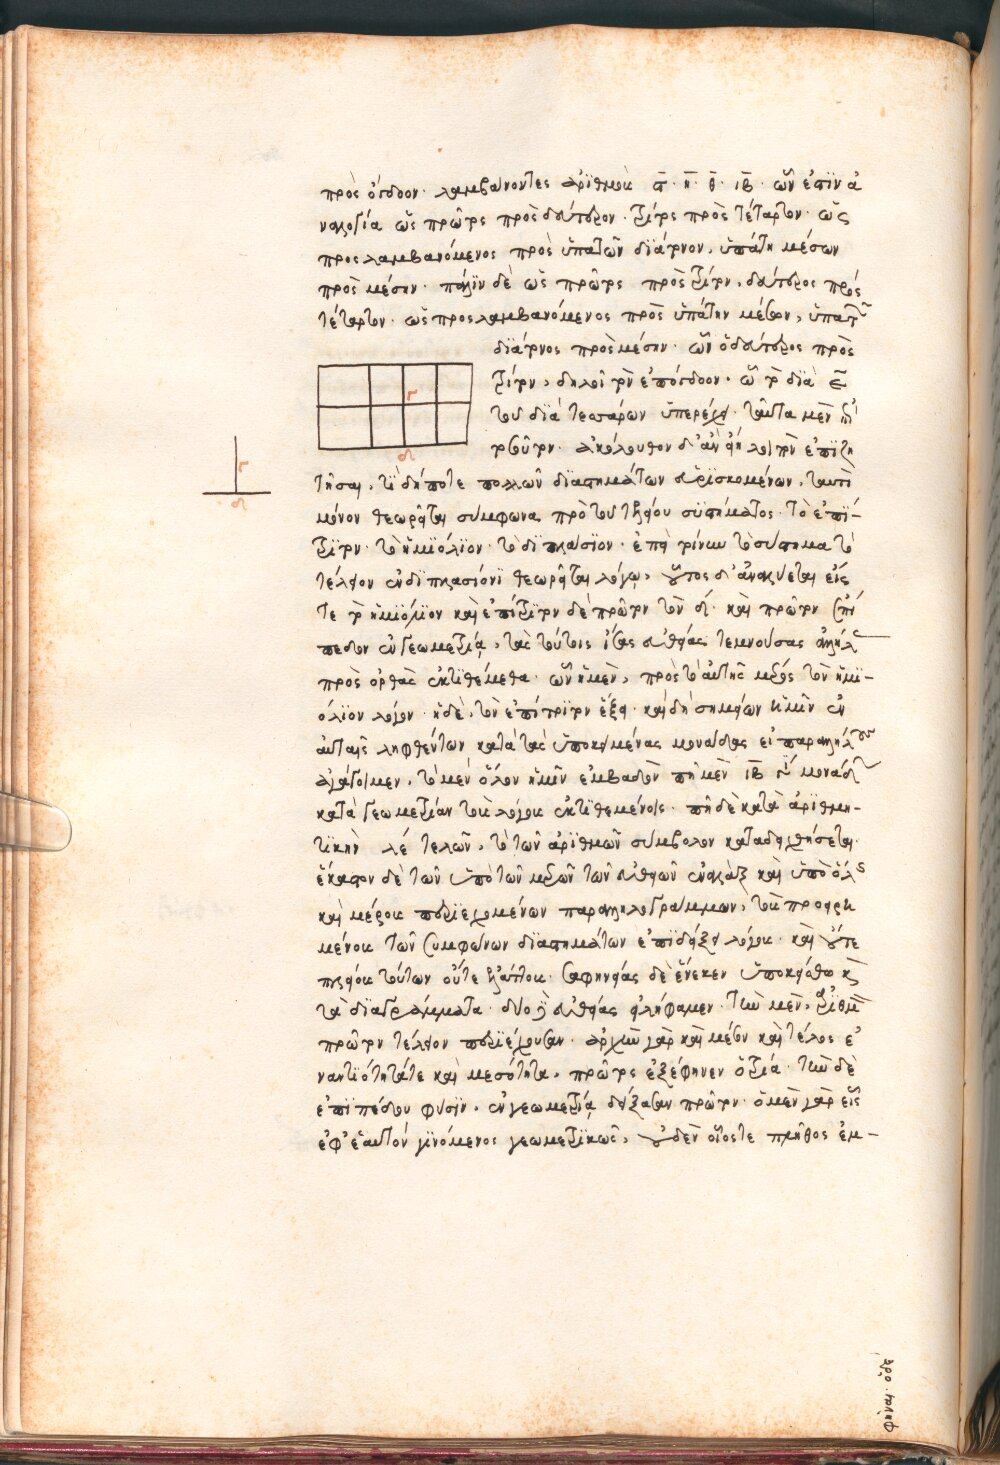 πρὸς ὄγδοον· λαμβάνοντες ἀριθμοὺς ϛ̅· η̅· θ̅· ιβ̅· ὧν ἐστὶν ἀ
ναλογία ὡς πρῶτος πρὸς δεύτερον· τρίτος πρὸς τέταρτον· ὡς
προςλαμβανόμενος πρὸς ὑπατῶν διάτονον, ὑπάτη μέσων
πρὸς μέσην· πάλιν δὲ ὡς πρῶτος πρὸς τρίτον, δεύτερος πρὸς
τέταρτον· ὡς προςλαμβανόμενος πρὸς ὑπάτην μέσων, ὑπατῶν
διάτονος πρὸς μέσην· ὧν ὁ δεύτερος πρὸς
τρίτον, δηλοῖ τὸν ἐπόγδοον· ᾧ τὸ διὰ ε̅
τοῦ διὰ τεσσάρων ὑπερέχει· ταῦτα μὲν
τοῦτον· ἀκόλουθον δ' ἂν εἴη λοιπὸν ἐπιζη
τῆσαι, τί δήποτε πολλῶν διαστημάτων εὑρισκομένων, ταυτὶ
μόνον θεωρεῖται σύμφωνα πρὸ τοῦ τελείου συστήματος· τὸ ἐπί-
τριτον· τὸ ἡμιόλιον· τὸ διπλάσιον· ἐπεὶ τοίνυν τὸ σύστημα τὸ
τέλειον ἐν διπλασίονι θεωρεῖται λόγῳ, οὗτος δ' ἀναλύεται εἴς
τε τὸ ἡμιόλιον καὶ ἐπίτριτον δὲ πρῶτον τὸν δ· καὶ πρῶτον ἐπί
πεδον ἐν γεωμετρίᾳ, τὰς τούτοις ἴσας εὐθείας τεμνούσας ἀλλήλας
πρὸς ὀρθὰς ἐκτιθέμεθα· ὧν ἡ μὲν, πρὸς τὸ αὐτῆς μέρος τὸν ἡμι-
όλιον λόγον· ἡ δὲ, τὸν ἐπίτριτον ἕξει· καὶ δὴ σημείων ἡμῖν ἐν
αὐταῖς ληφθέντων κατὰ τὰς ὑποκειμένας μονάδας εἰ παραλλήλους
διαγάγοιμεν, τὸ μὲν ὅλον ἡμῖν ἐμβαδὸν πῆ μὲν ιβ̅ μονάδων
κατὰ γεωμετρίαν τοὺς λόγους ἐκτιθεμένοις· πῆ δὲ κατὰ ἀριθμη-
τικὴν λε τελῶν, τὸ τῶν ἀριθμῶν σύμβολον καταδειχθήσεται·
ἕκαστον δὲ τῶν ὑπὸ τῶν μερῶν τῶν εὐθειῶν ἐναλλὰξ καὶ ὑπὸ ὅλης
καὶ μέρους περιεχομένων παραλληλογράμμων, τοὺς προειρη
μένους τῶν συμφώνων διαστημάτων ἐπιδείξει λόγους· καὶ οὔτε
πλείους τούτων οὔτε ἐλάττους· σαφηνείας δὲ ἕνεκεν ὑποκείσθω καὶ
τὰ διαγράμματα· δύο εὐθείας εἰλήφαμεν· τὴν μὲν, ἀριθμὸν
πρῶτον τέλειον περιέχουσαν· ἀρχὴν γὰρ καὶ μέσον καὶ τέλος ἐ
ναντιότητάτε καὶ μεσότητα, πρῶτος ἐξέφηνεν ὁ τρία· τὴν δὲ
ἐπιπέδου φύσιν, ἐν γεωμετρίᾳ δείξασαν πρῶτον· ὁ μὲν γὰρ εἷς
ἐφ' ἑαυτὸν γινόμενος γεωμετρικῶς, οὐδὲν οἷόςτε πλῆθος ἐμ-
γ
δ
γ
δ